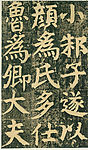 小邾子遂以
顏爲氏多仕
魯爲卿大夫